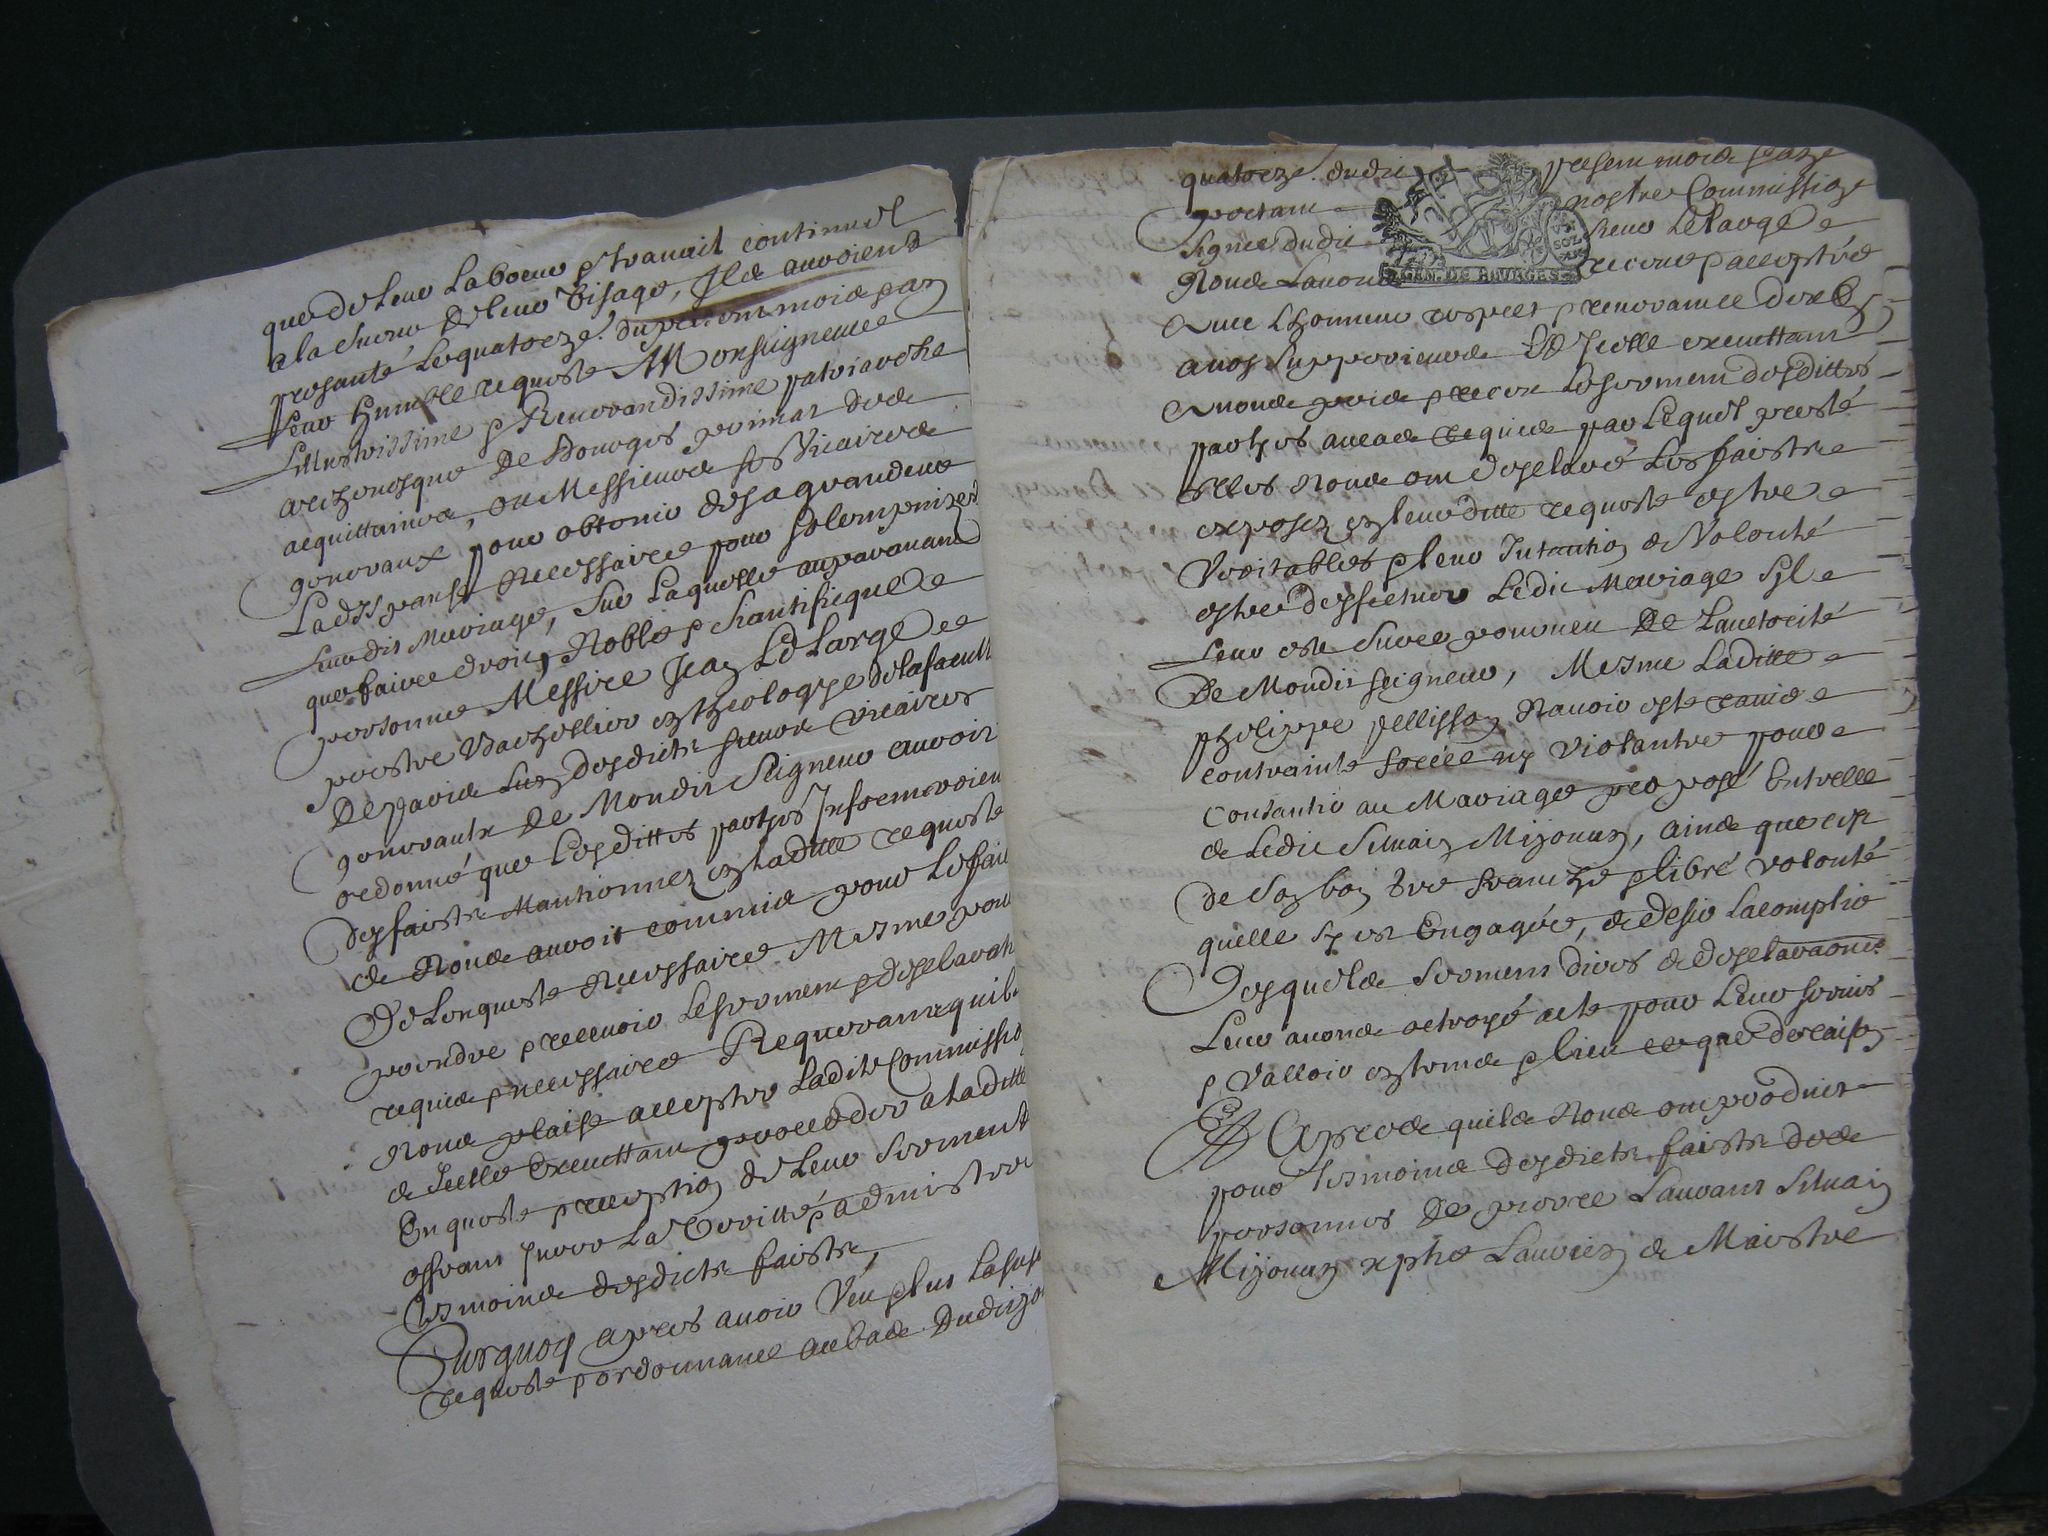 que de leur labeur & travail continuel
a la sueur de leur visage, Ils auroient
presanté le quatorze du presant mois par
leur humble requeste A Monseigneur
Lillustrissime & Reverandissime patriarche
archevesque de Bourges primat des
acquittaines, ou Messieurs ses Vicaires
generaux pour obtenir de sa grandeur
La dispanse necessaire pour solempnizer
leurdit mariage, sur laquelle auparavant
que faire droit, Noble & sciantificque
personne Messire Jean Le Large
prestre Bachellier en theologye de la facult
de paris lun desdicts sieurs vicaires
generaulx de Mondit Seigneur auroit
ordonné que lesdittes partyes Informeroien
des faicts mantionnez en laditte requeste
& Nous auroit commis pour le fai
de Lenqueste necessaire Mesme pou
prendre & recevoir le serment & desclarat
requis & necessaire Requerant quil
Nous plaise accepter ladite Commissio
& Icelle executtant proceder a laditte
Enqueste & reception de leur serment
offrant jurer la veritté & administrer
tesmoins desdicts faicts,
Surquoy apres avoir veu plus la sus
requeste & ordonnance au bas dudit jo
quatorze dudit presant mois
portant nostre Commission
signée dudit sieur Lelarge
Nous Lavons receue & acceptée
GEN. DE BOURGES
SOL
avec lhonneur respect & reverance deub
a nos supperieurs & Icelle executtant
avons pris & receu le serment desdittes
partyes au cas requis par lequel presté
elles Nous ont desclaré les faicts
exposez en leurditte requeste estre
Veritables & leur Intantion & Volonté
estre deffectuer ledit Mariage syl
leur est sur ce pourveu de lauctorité
de Mondit seigneur, Mesme laditte
phelippe pellisson Navoir esté
contrainte forcée ny viollantée pour
consantir au Mariage proposé Entrelle
& ledit Silvain Mijouan, ains que cest
de son bon gré franche & libre volonté
quelle sy est Engagée, & desir lacomplir
Desquels sermens dires & desclaraons
leur avons octroyé acte pour leur servir
& valloir en temps & lieu ce que de raison
Et Apres quils Nous ont produict
pour tesmoins desdicts faicts des
personnes de pierre Lauvans Silvain
Mijouan xphe Laurien & Maistre